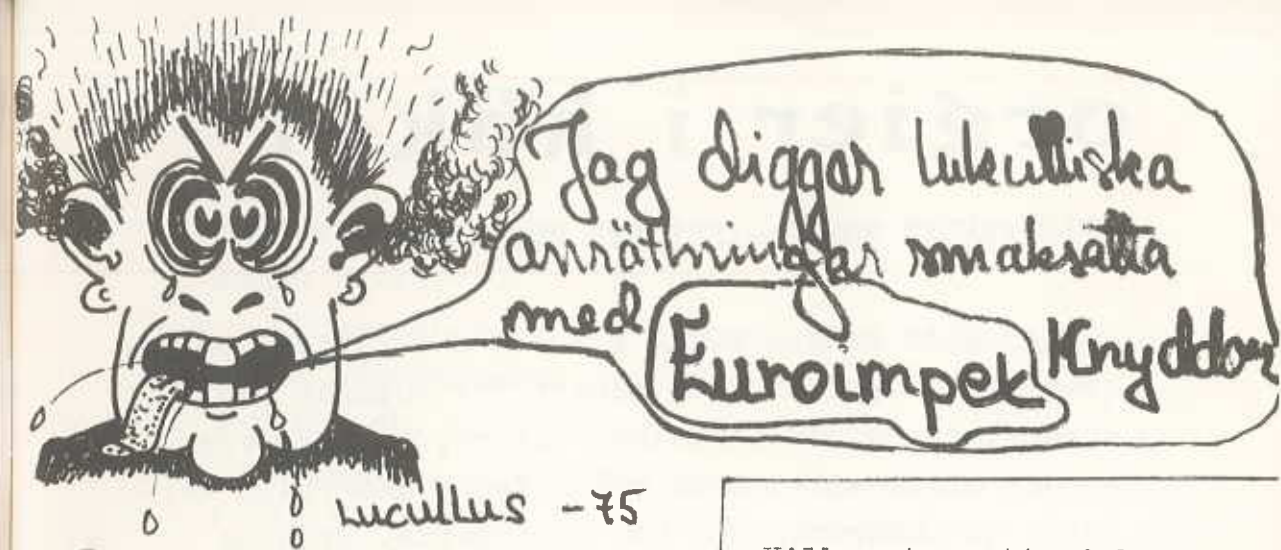 Jag diggar lukulliska
anrättningar smaksatta
med Euroimpex Kryddor
Lucullus - 75